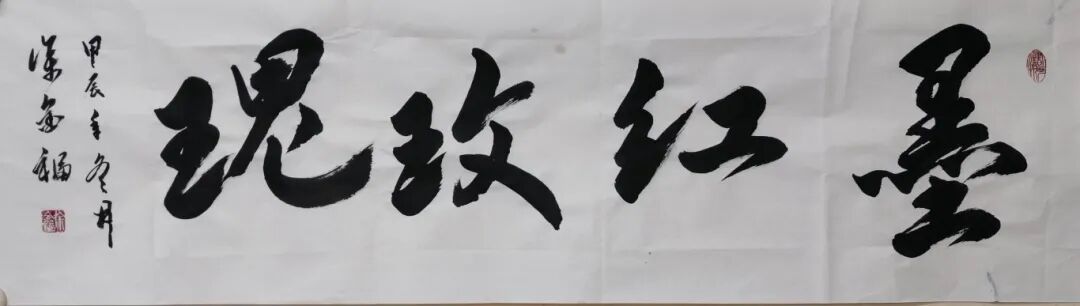 墨红玫瑰
甲辰年冬月